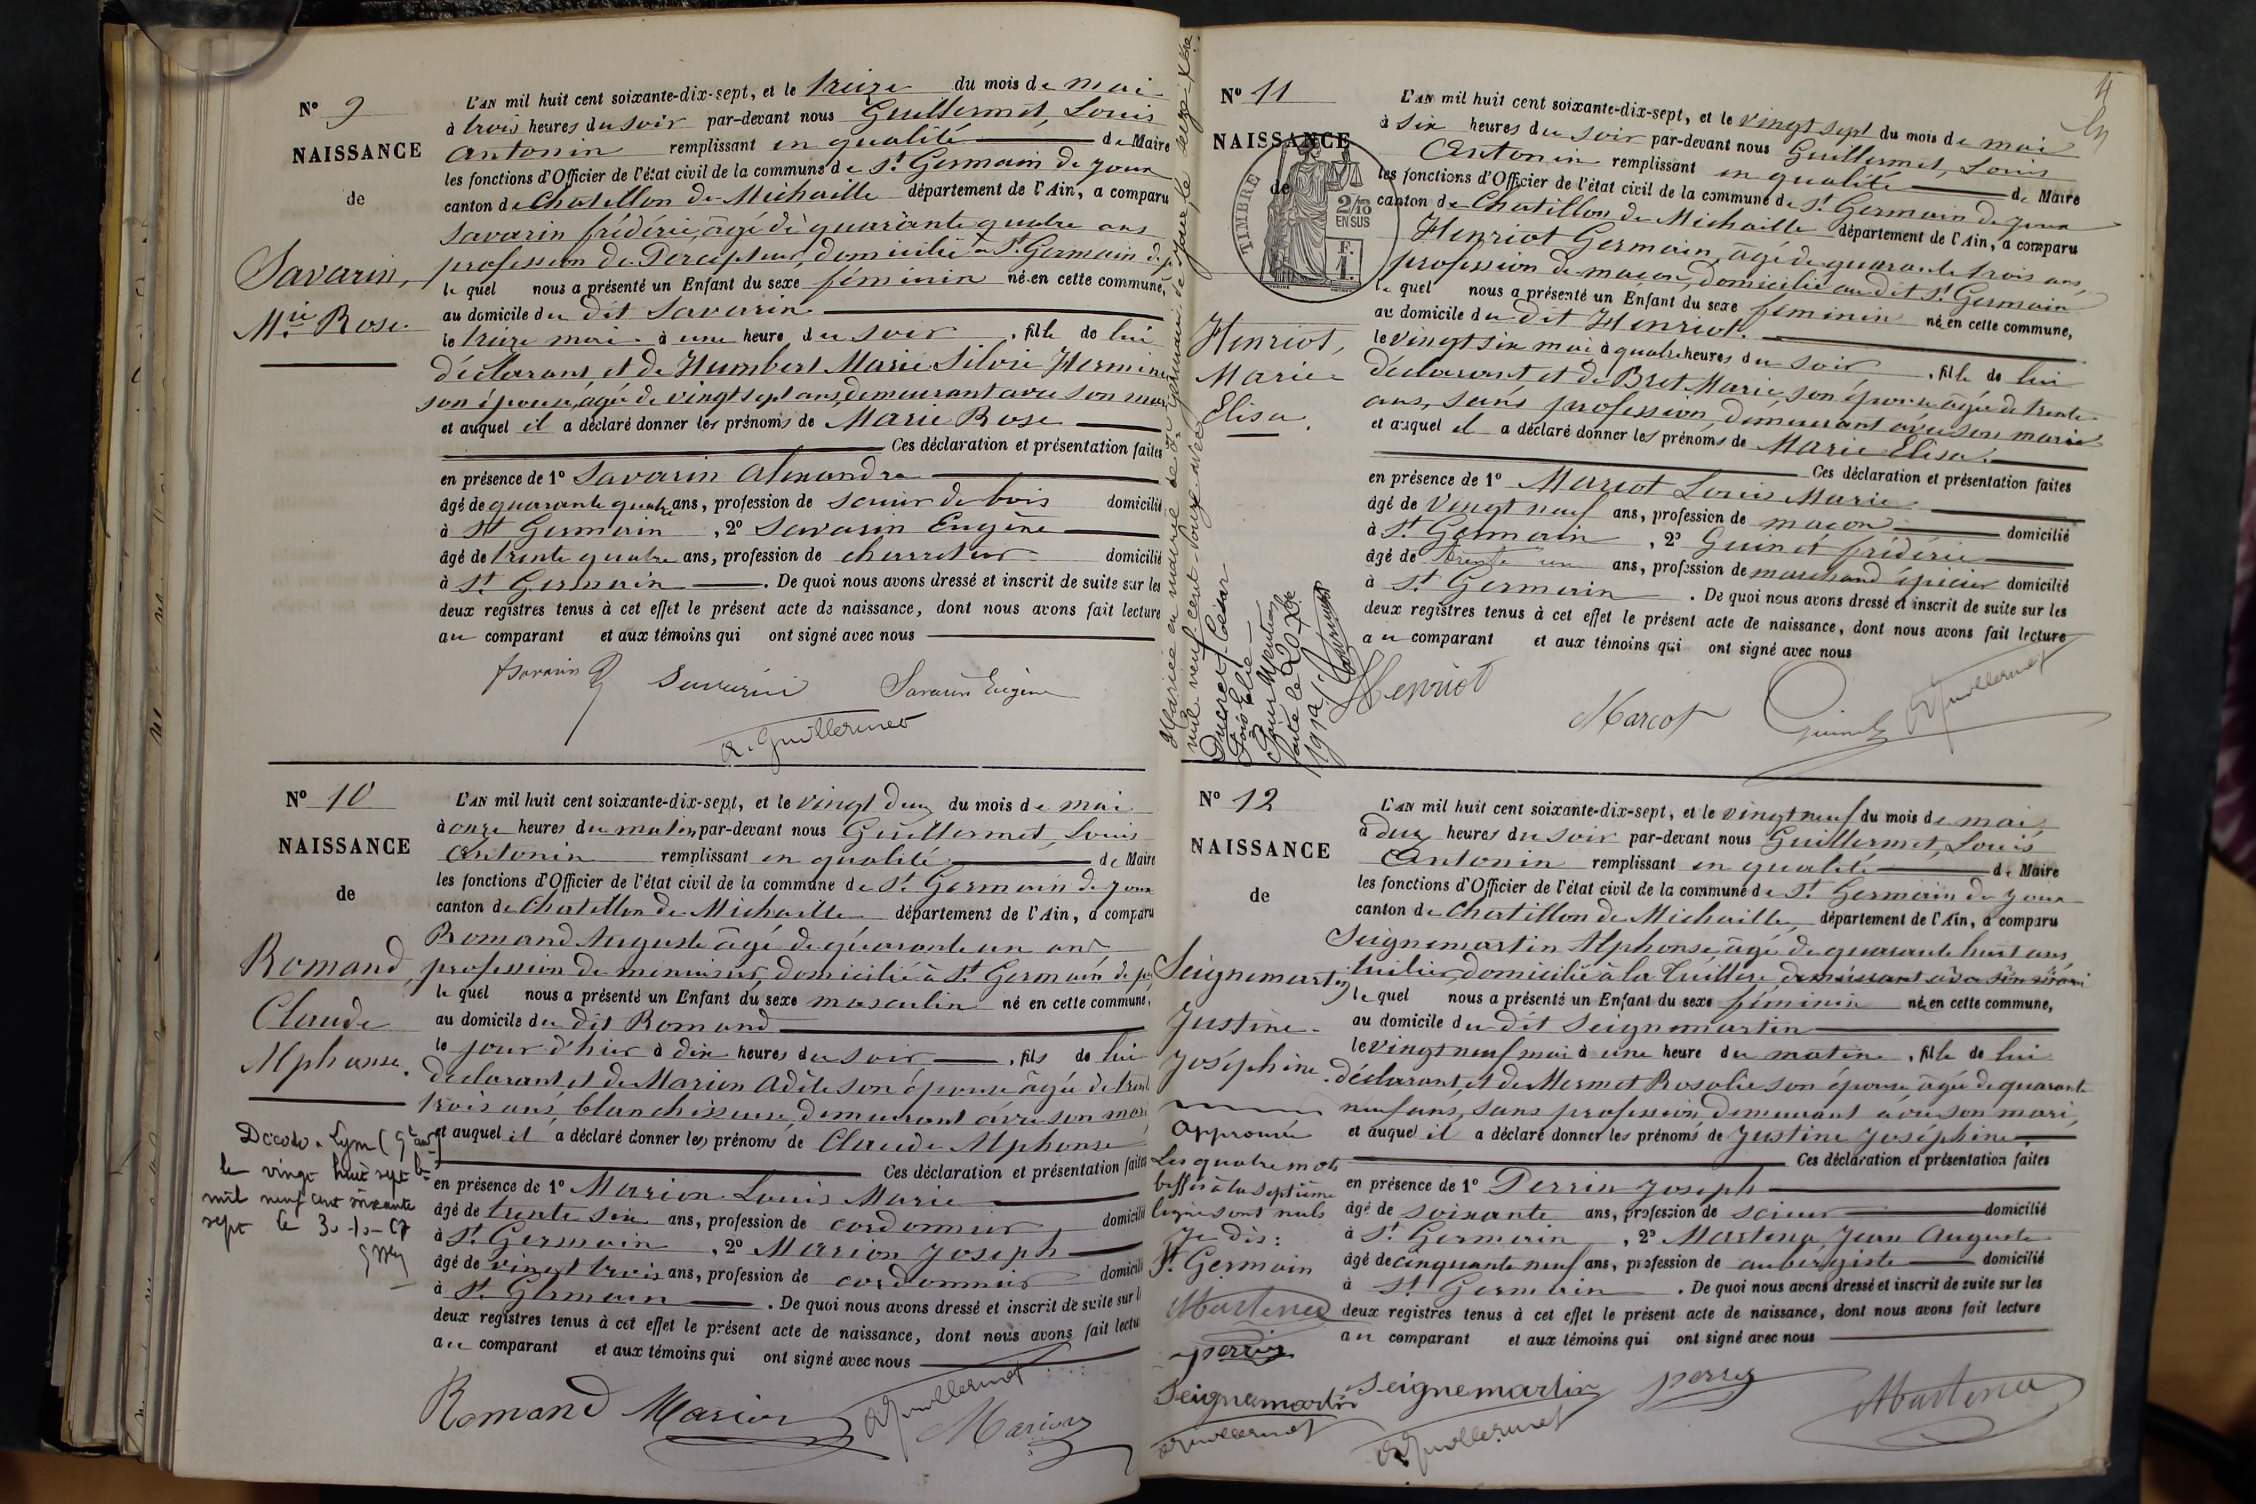 N° 9
NAISSANCE
de
Savarin,
Mie Rose
L'AN mil huit cent soixante-dix-sept, et le treize du mois de mai
à trois heures du soir par-devant nous Guillermet, Louis
Antonin remplissant en qualité de Maire
les fonctions d'Officier de l'état civil de la commune de St Germain de Joux
canton de Chatillon de Michaille département de l'Ain, a comparu
Savarin frédéric, âgé de quarante quatre ans
profession de Percepteur, domicilié à St Germain de j.
le quel nous a présenté un Enfant du sexe féminin né en cette commune,
au domicile du dit Savarin
le treize mai à une heure du soir, fille de lui
déclarant et de Humbert Marie Silvie Hermine
son épouse, âgée de vingt sept ans, demeurant avec son mari
et auquel il a déclaré donner les prénoms de Marie Rose
Ces déclaration et présentation faites
en présence de 1° Savarin Alexandre
âgé de quarante quatre ans, profession de scieur de bois domicilié
à St Germain, 2° Savarin Eugène
âgé de trente quatre ans, profession de charretier domicilié
à St Germain. De quoi nous avons dressé et inscrit de suite sur les
deux registres tenus à cet effet le présent acte de naissance, dont nous avons fait lecture
au comparant et aux témoins qui ont signé avec nous
Savarin
Savarin
Savarin Eugène
A. Guillermet
N° 10
NAISSANCE
de
Romand,
Claude
Alphonse.
Décédé à Lyon (9e arr)
le vingt huit sept bre
mil neuf cent soixante
sept le 30-10-67
L'AN mil huit cent soixante-dix-sept, et le vingt deux du mois de mai
à onze heures du matin par-devant nous Guillermet, Louis
Antonin remplissant en qualité de Maire
les fonctions d'Officier de l'état civil de la commune de St Germain de Joux
canton de Chatillon de Michaille département de l'Ain, a comparu
Romand Auguste âgé de quarante un ans
profession de menuisier, domicilié à St Germain de j.
le quel nous a présenté un Enfant du sexe masculin né en cette commune,
au domicile du dit Romand
le jour d'hier à dix heures du soir, fils de lui
déclarant, et de Marion Adèle son épouse âgée de trente
trois ans, blanchisseuse, demeurant avec son mari
et auquel il a déclaré donner les prénoms de Claude Alphonse
Ces déclaration et présentation faites
en présence de 1° Marion Louis Marie
âgé de trente six ans, profession de cordonnier domicilié
à St Germain, 2° Marion Joseph
âgé de vingt trois ans, profession de cordonnier domicilié
à St Germain. De quoi nous avons dressé et inscrit de suite sur l
deux registres tenus à cet effet le présent acte de naissance, dont nous avons fait lectu
au comparant et aux témoins qui ont signé avec nous
Romand
Marion
A Guillermet
Marion
4
N° 11
NAISSANCE
de
TIMBRE
2/10
EN SUS
F.
1.
Henriot,
Marie
Elisa.
Mariée en mairie de St Germain de Joux le seize Xbre
mil neuf cent douze avec
Ducret César
François Elie
Pour Mention
faite le 20 Xbre
1912
L'AN mil huit cent soixante-dix-sept, et le vingt sept du mois de mai
à six heures du soir par-devant nous Guillermet, Louis
Antonin remplissant en qualité de Maire
les fonctions d'Officier de l'état civil de la commune de St Germain de Joux
canton de Chatillon de Michaille département de l'Ain, a comparu
Henriot Germain, âgé de quarante trois ans,
profession de maçon, domicilié au dit St Germain
le quel nous a présenté un Enfant du sexe féminin né en cette commune,
au domicile du dit Henriot.
le vingt six mai à quatre heures du soir, fille de lui
déclarant et de Bret Marie, son épouse âgée de trente
ans, sans profession, demeurant avec son mari
et auquel il a déclaré donner les prénoms de Marie Elisa.
Ces déclaration et présentation faites
en présence de 1° Marcot Louis Marie
âgé de vingt neuf ans, profession de maçon domicilié
à St Germain, 2° Guinet frédéric
âgé de trente un ans, profession de marchand épicier domicilié
à St Germain. De quoi nous avons dressé et inscrit de suite sur les
deux registres tenus à cet effet le présent acte de naissance, dont nous avons fait lecture
au comparant et aux témoins qui ont signé avec nous
Henriot
Marcot
Guinet
A Guillermet
N° 12
NAISSANCE
de
Seignemartin
Justine
Joséphine.
Approuvé
Les quatre mots
biffés à la septième
ligne sont nuls
Je dis:
St Germain
Martena
perrin
Seignemartin
A Guillermet
L'AN mil huit cent soixante-dix-sept, et le vingt neuf du mois de mai
à deux heures du soir par-devant nous Guillermet, Louis
Antonin remplissant en qualité de Maire
les fonctions d'Officier de l'état civil de la commune de St Germain de Joux
canton de Chatillon de Michaille, département de l'Ain, a comparu
Seignemartin Alphonse, âgé de quarante huit ans,
tuilier, domicilié à la Tuillere demeurant avec son mari
le quel nous a présenté un Enfant du sexe féminin né en cette commune,
au domicile du dit Seignemartin
le vingt neuf mai à une heure du matin, fille de lui
déclarant, et de Mermet Rosalie son épouse, âgée de quarante
neuf ans, sans profession, demeurant avec son mari,
et auquel il a déclaré donner les prénoms de Justine Joséphine
Ces déclaration et présentation faites
en présence de 1° Perrin Joseph
âgé de soixante ans, profession de scieur domicilié
à St Germain, 2° Martena Jean Auguste
âgé de cinquante neuf ans, profession de aubergiste domicilié
à St Germain. De quoi nous avons dressé et inscrit de suite sur les
deux registres tenus à cet effet le présent acte de naissance, dont nous avons fait lecture
au comparant et aux témoins qui ont signé avec nous
Seignemartin
perrin
Martena
A Guillermet